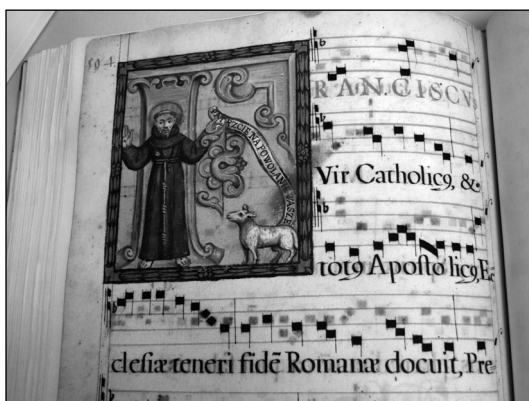 594.
RANCISCVS
NA
Vir Catholicꝰ, &.
totꝰ Apoſto licꝰ, Ec
cleſiæ teneri fidē Romanæ docuit, Pre